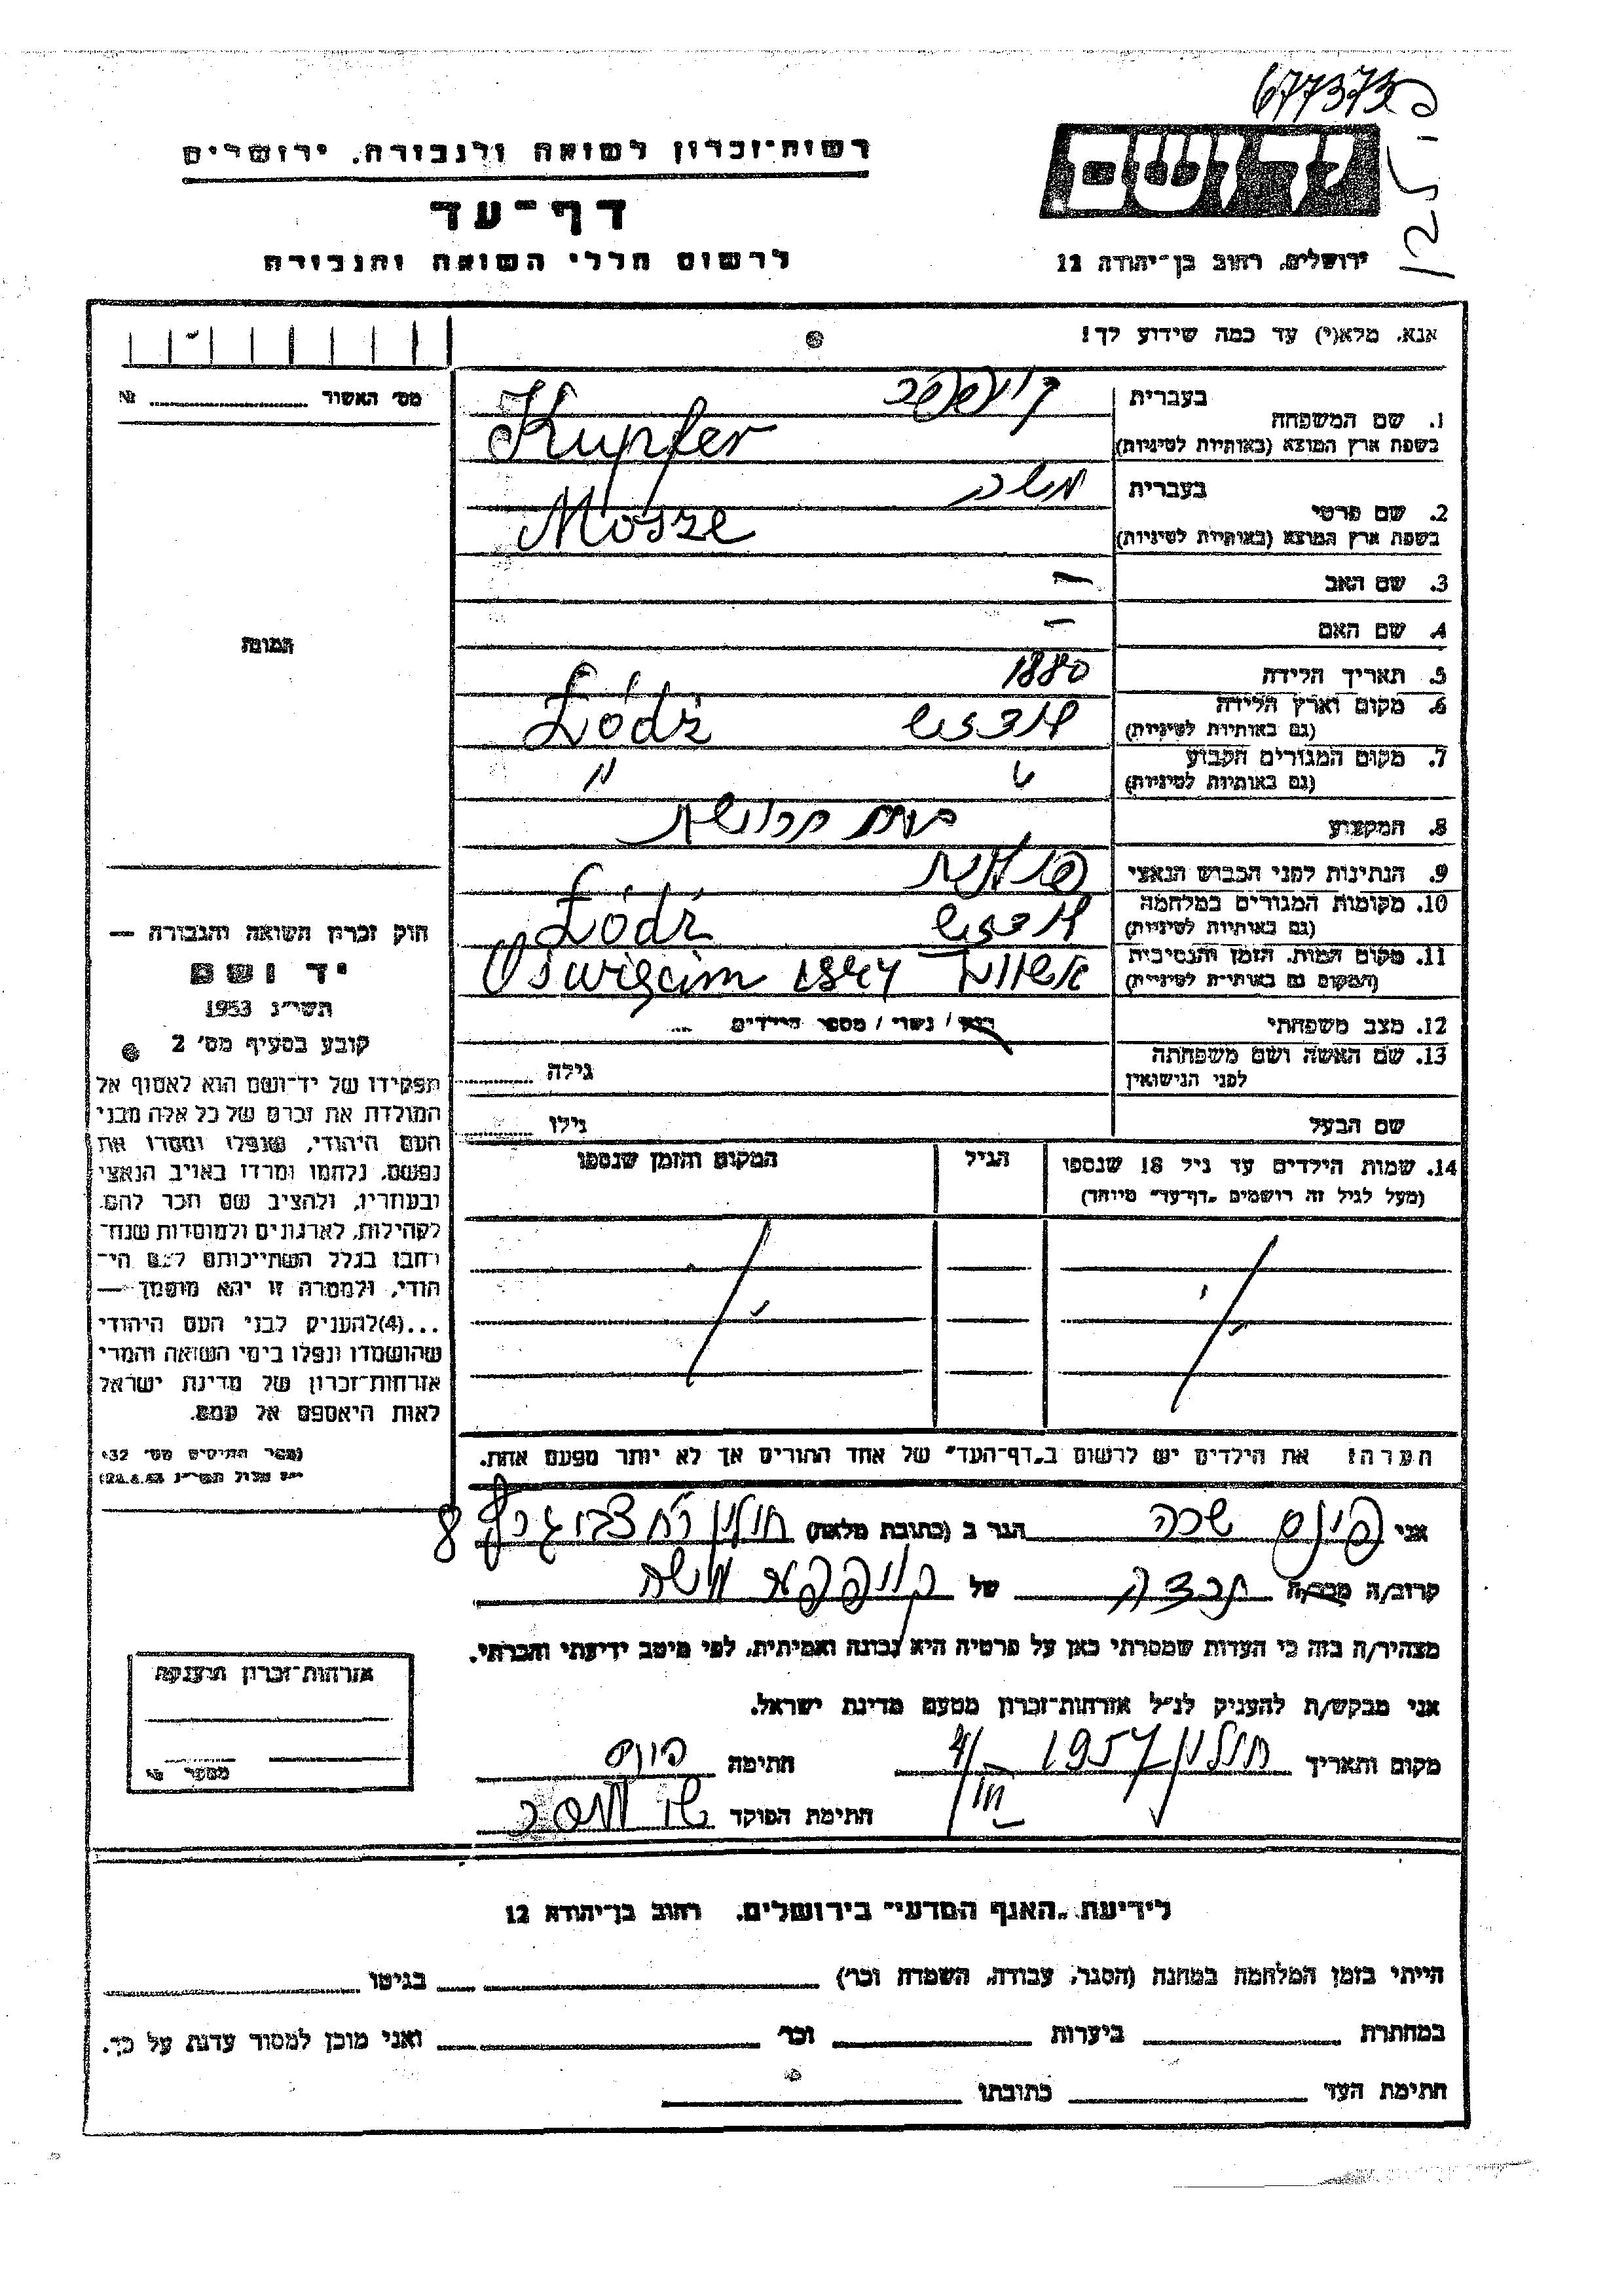 677373
רשות־זכרון לשואה ולגבורה, ירושלים
דף־עד
לרשום חללי השואה והגבורה
ירושלים, רחוב בן־יהודה 12
אנא, מלא(י) עד כמה שידוע לך!
מס׳ האשור № 
1. שם המשפחה
בעברית
בשפת ארץ המוצא (באותיות לטיניות)
Kupfer
2. שם פרטי
בעברית משה
בשפת ארץ המוצא (באותיות לטיניות)
Mosze
3. שם האב –
4. שם האם –
תמונה
5. תאריך הלידה 1880
6. מקום וארץ הלידה
(גם באותיות לטיניות)
לודז׳ Łódź
7. מקום המגורים הקבוע
(גם באותיות לטיניות)
" "
8. המקצוע בעל חרושת
9. הנתינות לפני הכבוש הנאצי פולנית
10. מקומות המגורים במלחמה
(גם באותיות לטיניות)
לודז׳ Łódź
11. מקום המות, הזמן והנסיבות
(המקום גם באותיות לטיניות)
1944 Oświęcim
12. מצב משפחתי רווק / נשוי / מספר הילדים
13. שם האשה ושם משפחתה
לפני הנישואין
גילה
שם הבעל
גילו
14. שמות הילדים עד גיל 18 שנספו
(מעל לגיל זה רושמים „דף־עד״ מיוחד)
הגיל
המקום והזמן שנספו
הערה: את הילדים יש לרשום ב„דף־העד״ של אחד ההורים אך לא יותר מפעם אחת.
חוק זכרון השואה והגבורה —
יד ושם
תשי״ג 1953
קובע בסעיף מס׳ 2
תפקידו של יד־ושם הוא לאסוף אל
המולדת את זכרם של כל אלה מבני
העם היהודי, שנפלו ומסרו את
נפשם, נלחמו ומרדו באויב הנאצי
ובעוזריו, ולהציב שם וזכר להם,
לקהילות, לארגונים ולמוסדות שנח־
רחבו בגלל השתייכותם לעם הי־
הודי, ולמטרה זו יהא מוסמך —
...(4)להעניק לבני העם היהודי
שהושמדו ונפלו בימי השואה והמרי
אזרחות־זכרון של מדינת ישראל
לאות היאספם אל עמם.
אני פינס שרה הגר ב (כתובת מלאה) חולון 8
קרוב/ה מכר/ה של קופפר משה
מצהיר/ה בזה כי העדות שמסרתי כאן על פרטיה היא נכונה ואמיתית, לפי מיטב ידיעתי והכרתי.
אני מבקש/ת להעניק לנ״ל אזרחות־זכרון מטעם מדינת ישראל.
מקום ותאריך חולון 1957 חתימה פינס
חתימת הפוקד
אזרחות־זכרון הוענקה
מספר
לידיעת „האגף המדעי״ בירושלים, רחוב בן־יהודה 12
הייתי בזמן המלחמה במחנה (הסגר, עבודה, השמדה וכו׳) בגיטו
במחתרת ביערות וכו׳ ואני מוכן למסור עדות על כך.
חתימת העד כתובתו